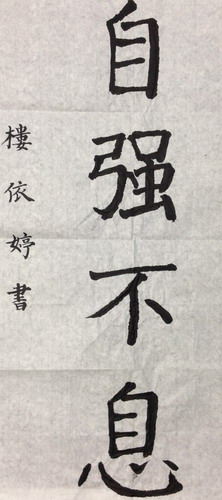 自强不息
樓依婷書